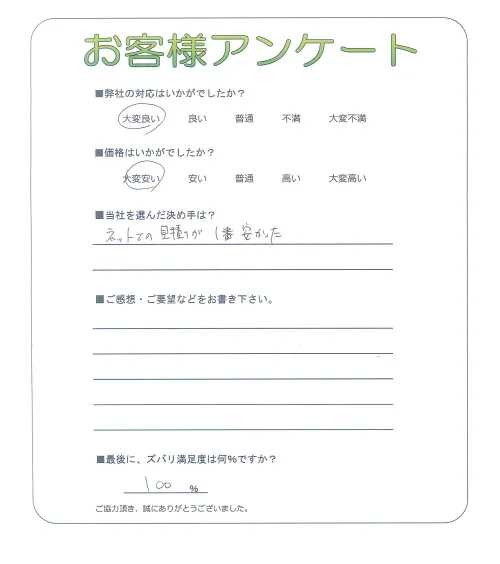 お客様アンケート
■弊社の対応はいかがでしたか？
大変良い 良い 普通 不満 大変不満
■価格はいかがでしたか？
大変安い 安い 普通 高い 大変高い
■当社を選んだ決め手は？
ネットでの見積りが1番安かった
■ご感想・ご要望などをお書き下さい。
■最後に、ズバリ満足度は何%ですか？
100 %
ご協力頂き、誠にありがとうございました。